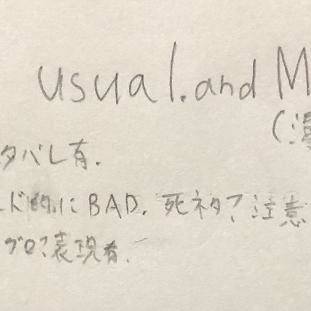 usual. and M
(漫
タバレ有.
ド的にBAD. 死ネタ? 注意
グロ?表現有.